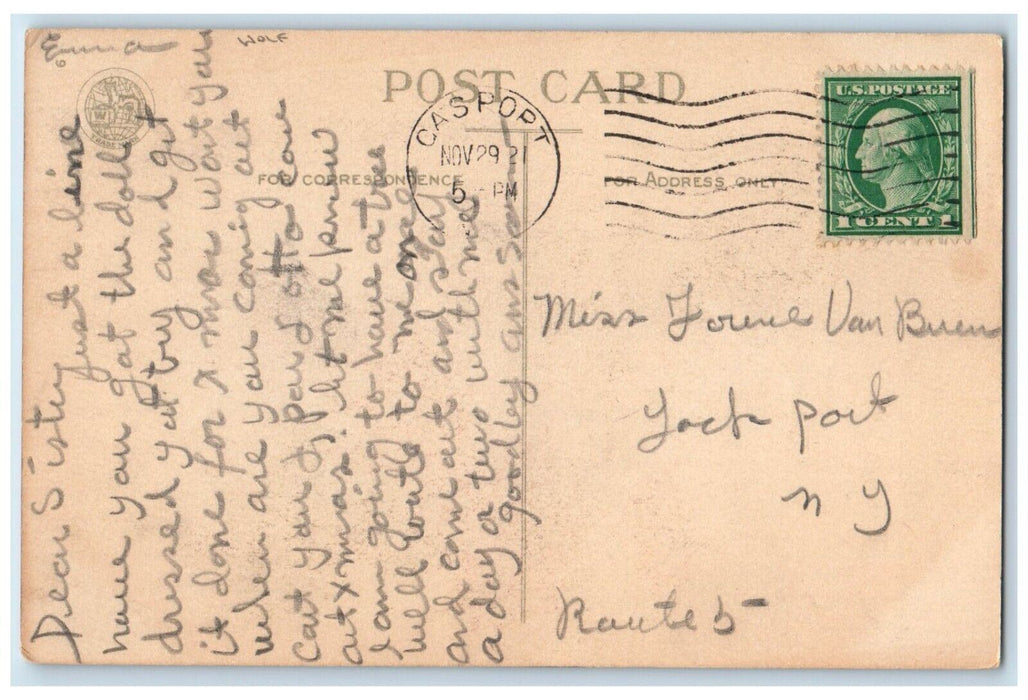 WOLF
POST CARD
FOR CORRESPONDENCE
FOR ADDRESS ONLY
GASPORT
NOV 29 21
5 - PM
U.S. POSTAGE
1 CENT 1
Miss Van Buren
Lock port
N Y
Route 5
Dear Sister just a line
have you got the dolls
dressed yet try and get
it done for x mas wont you
when are you coming out
cant you
out xmas. let me know
I am going to have a tree
well write to me once
and come out and stay
a day or two with me
goodby
Emma